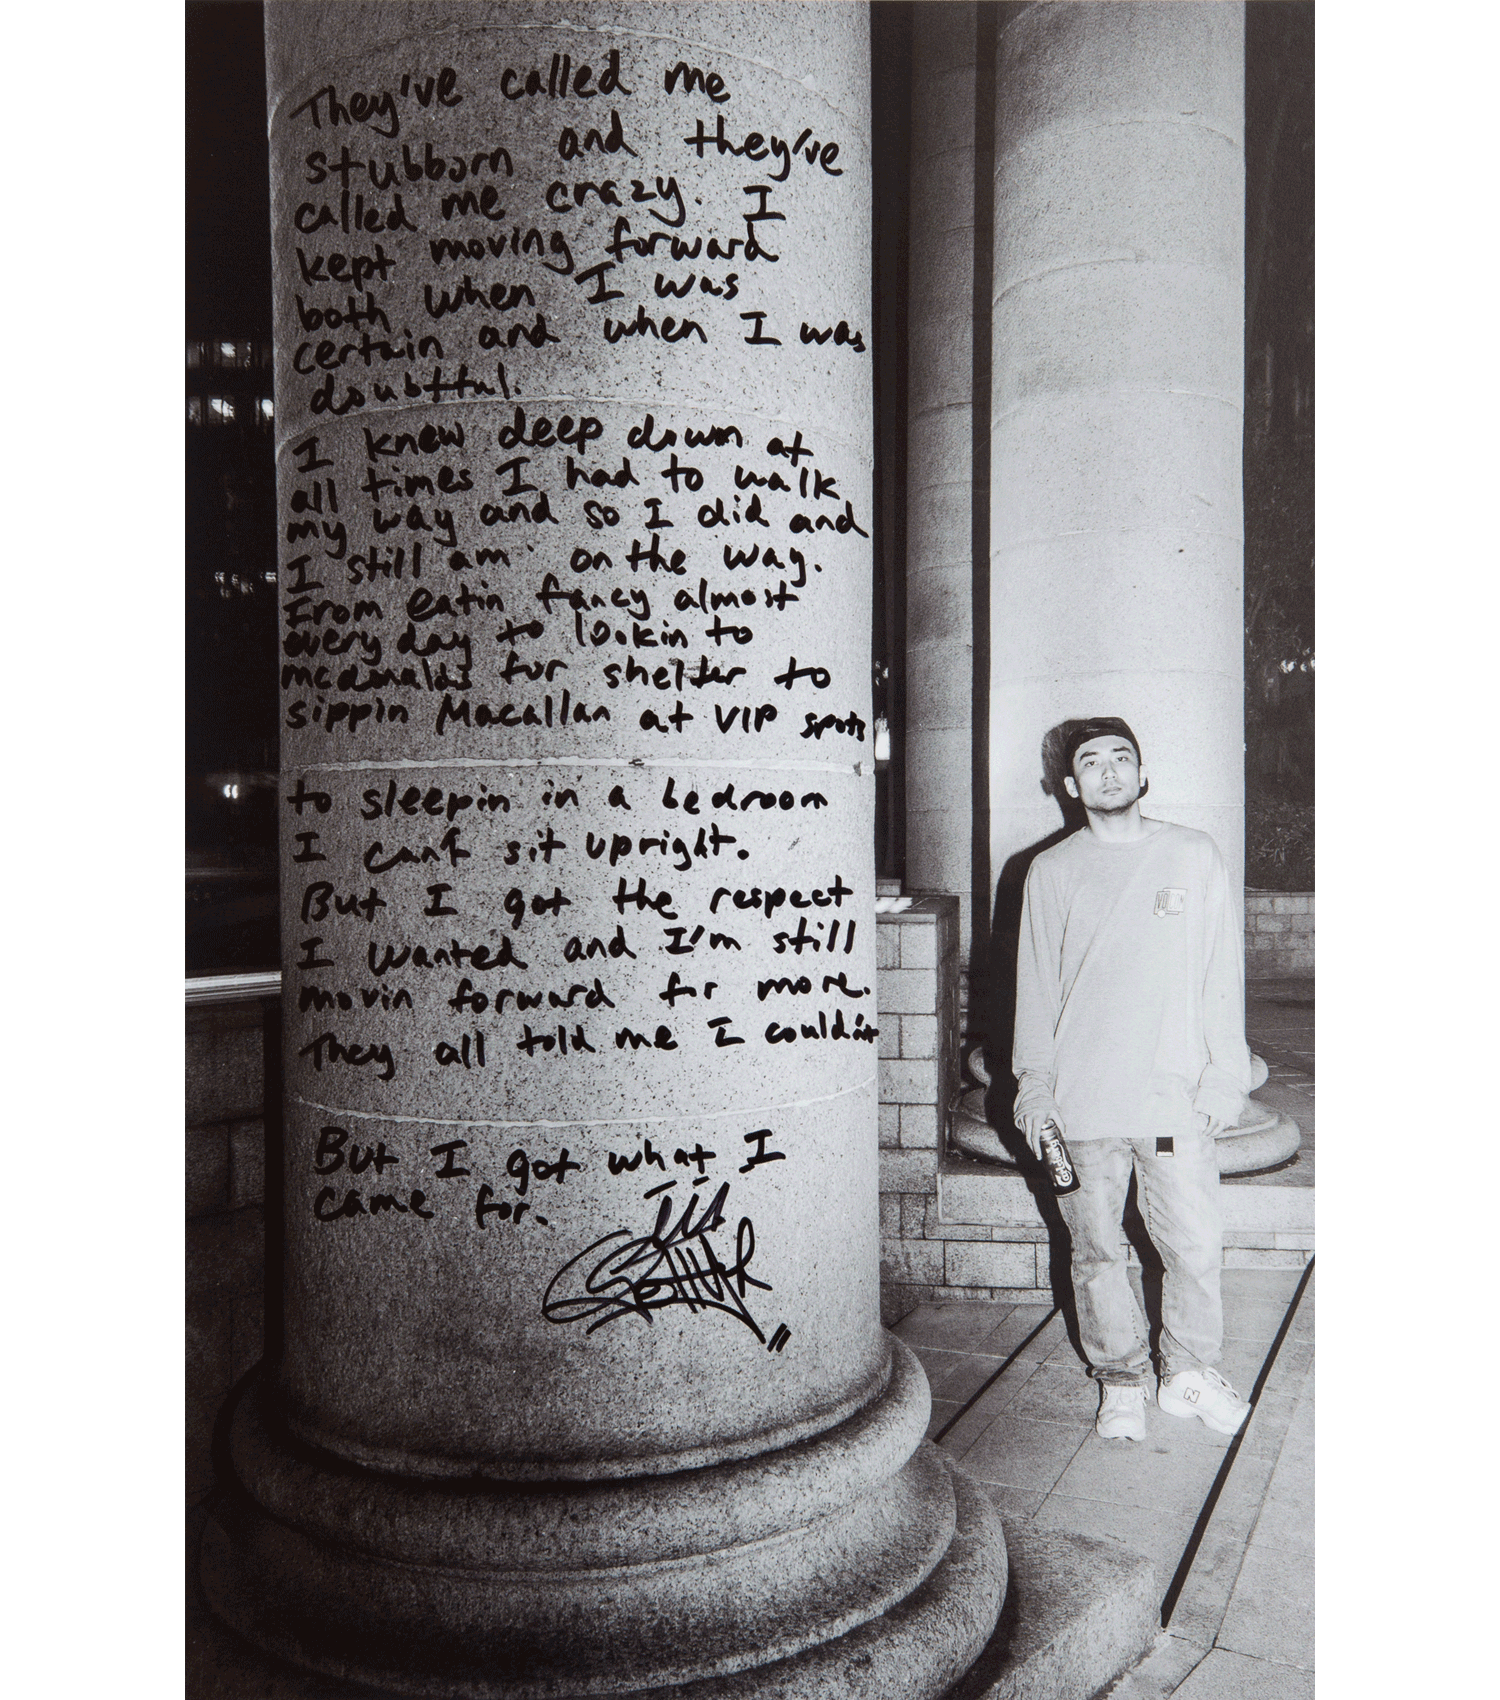 They've called me
stubborn and they've
called me crazy. I
kept moving forward
both when I was
certain and when I was
doubtful.
I knew deep down at
all times I had to walk
my way and so I did and
I still am on the way.
From eatin fancy almost
every day to lookin to
mcdonalds for shelter to
sippin Macallan at VIP spots
to sleepin in a bedroom
I can't sit upright.
But I got the respect
I wanted and I'm still
movin forward for more.
They all told me I couldn't
But I got what I
came for.
Carlsberg
N